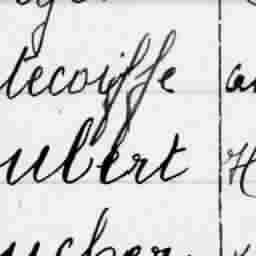 tecoiffe a
ubert H
ucher